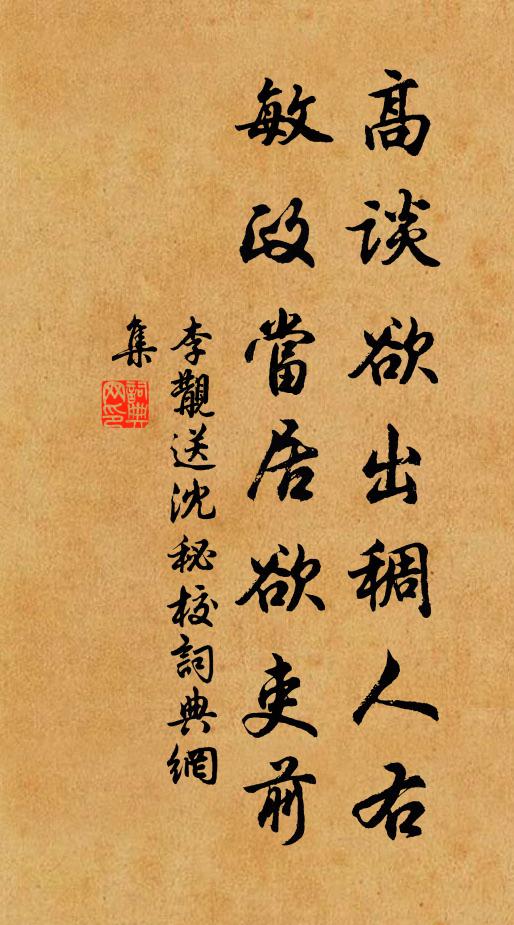 高談欲出稠人右
敏政當居欲吏前
李覯送沈秘校詞典網
集
詞典網印